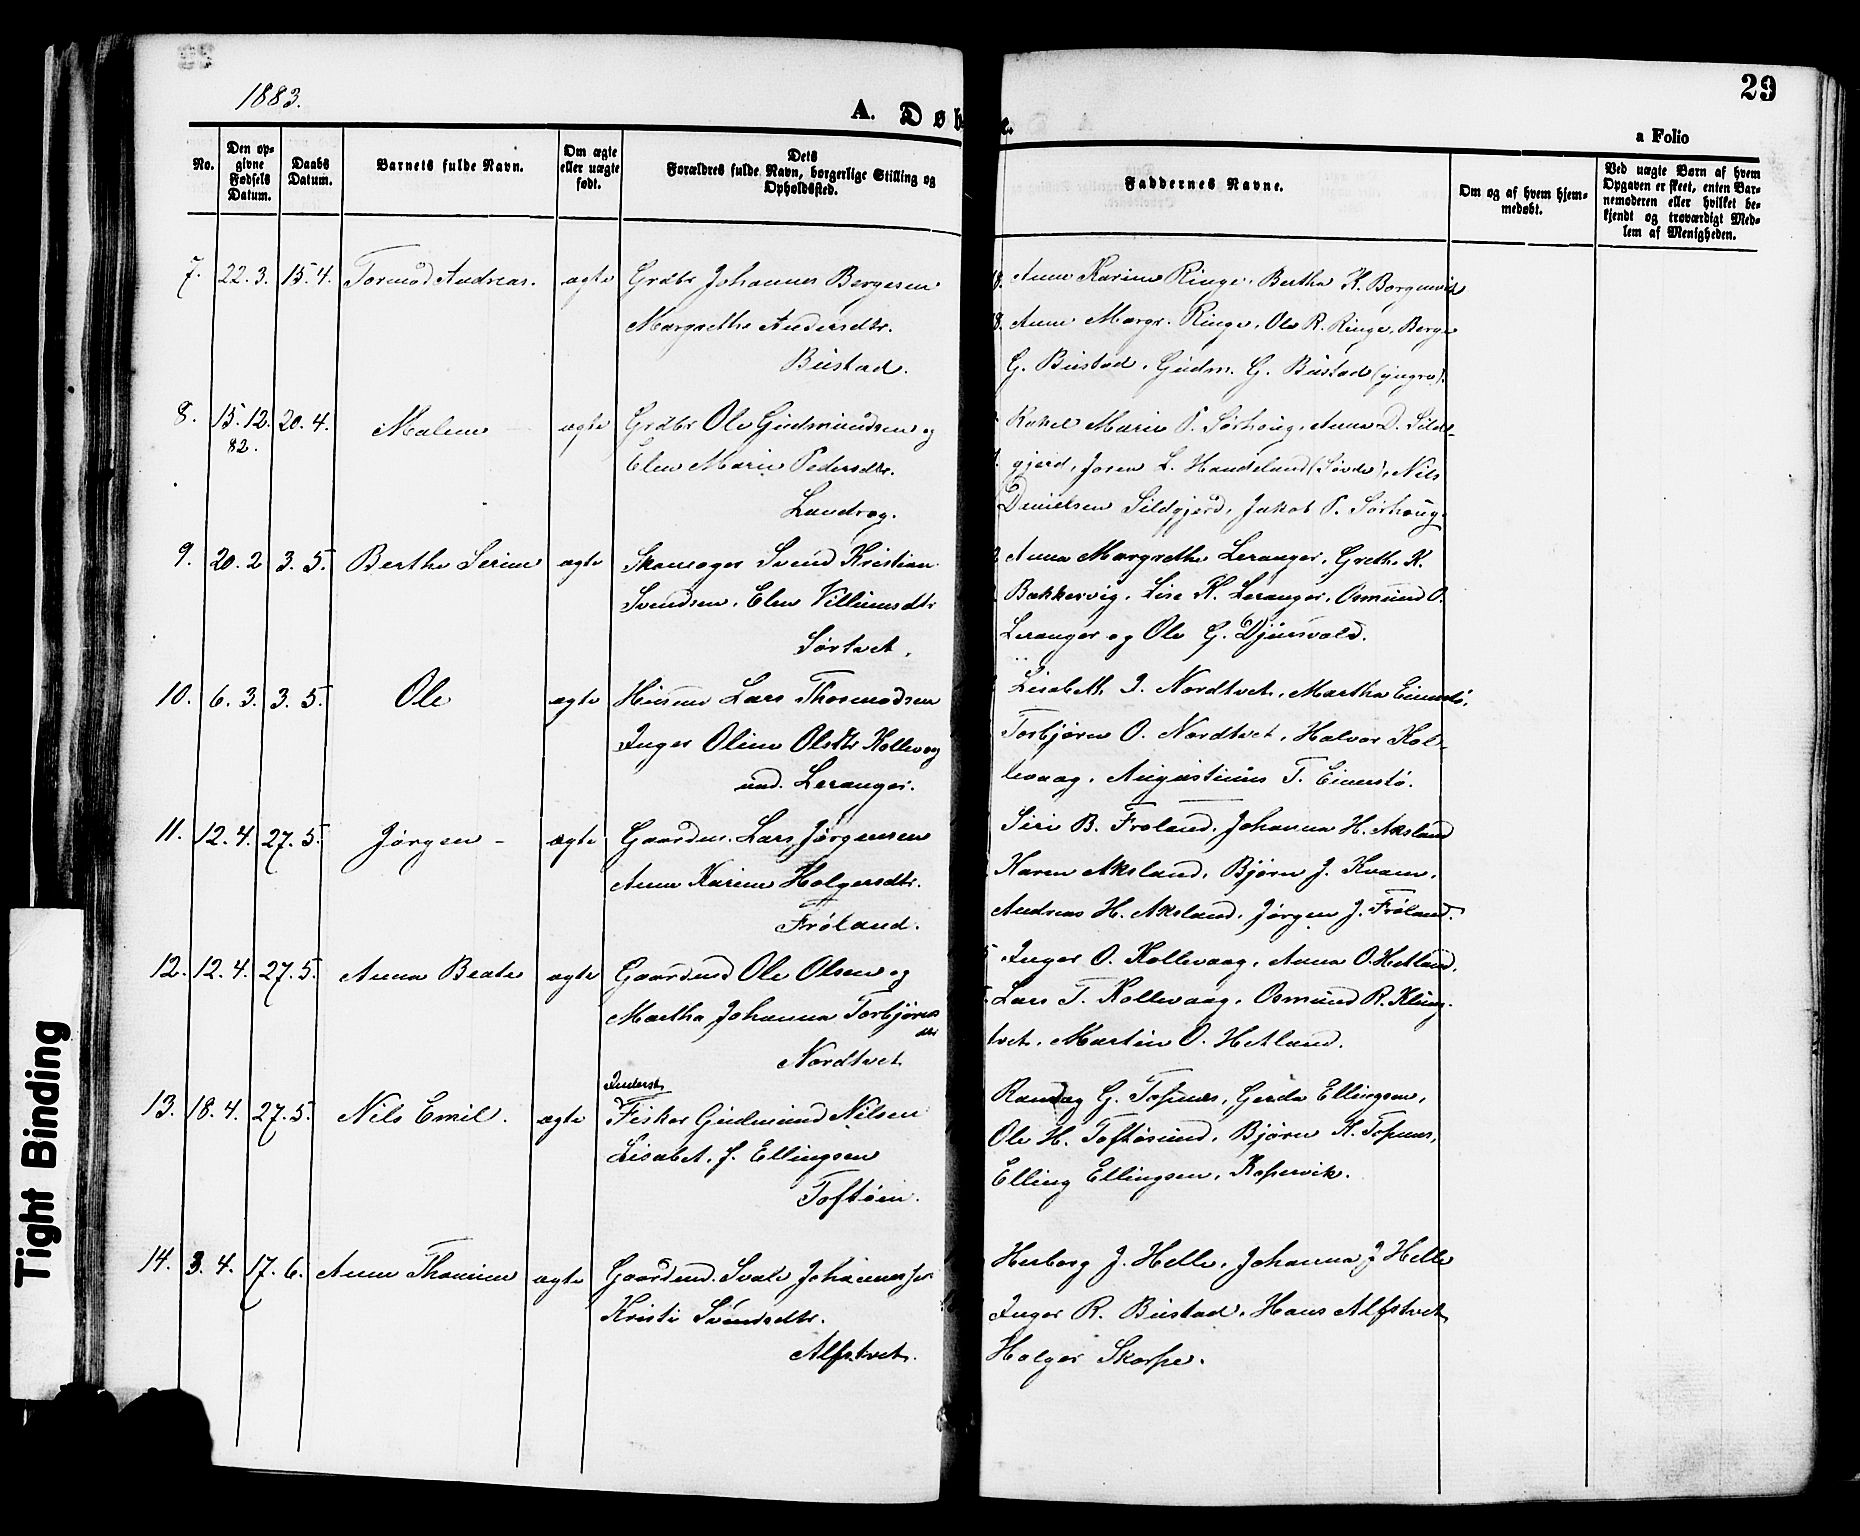 29
1883.
A. Døb e.
a Folio
No.
Den op-
givne
Fødsels
Datum.
Daabs
Datum.
Barnets fulde Navn.
Om ægte
eller uægte
født.
Dets
Forældres fulde Navn, borgerlige Stilling og
Opholdssted.
Faddernes Navne.
Om og af hvem hjem-
medøbt.
Ved uægte Børn af hvem
Opgaven er skeet, enten Bar-
nemoderen eller hvilket be-
kjendt og troværdigt Med-
lem af Menigheden.
7. 22. 3. 15. 4. Tormod Andreas. ægte Grdbr Johannes Bergesen
Margrethe Andersdtr.
Bustad.
Anne Karine Ringe, Bertha K. Borgenvik
Anne Margr. Ringe, Ole R. Ringe, Berge
G. Bustad, Gudm. G. Bustad (yngre).
8. 15. 12. 20. 4. Malene ægte Grdbr Ole Gudmundsen og
82.
Elen Marie Pedersdtr.
Landrog.
Rakel Marie P. Sørhoug, Anna D. Silde-
gjerd, Joren L. Handeland (Søvde), Nils
Danielsen Sildgjerd, Jakob P. Sørhoug.
9. 20. 2 3. 5. Berthe Serine ægte Skomager Svend Kristian
Svendsen, Elen Villumsdtr
Sørtvet.
Anna Margrethe Leranger, Grethe K.
Bakkervig, Lise K. Leranger, Osmund O.
Leranger og Ole G. Djursvold.
10. 6. 3. 3. 5. Ole ægte Husmd Lars Thormodsen
Inger Oline Olsdtr Kollevog
und. Leranger.
Lisabeth J. Nordtvet, Martha Eimestø,
Torbjørn O. Nordtvet, Halvor Kol-
levaag, Augustinus T. Eimestø.
11. 12. 4. 27. 5. Jørgen - ægte Gaardm. Lars Jørgensen
Anne Karine Holgersdtr.
Frøland.
Siri B. Froland, Johanna H. Aksland
Karen Aksland, Bjørn J. Kvam,
Andreas H. Aksland, Jørgen J. Frøland.
12. 12. 4. 27. 5. Anna Beate ægte Gaardmd Ole Olsen og
Martha Johanna Torbjørns
dtr
Nordtvet
Inger O. Kollevaag, Anna O. Hetland,
Lars T. Kollevaag, Osmund R. Kling-
tvet, Martin O. Hetland.
Inderst
13. 18. 4. 27. 5. Nils Emil. ægte Fisker Gudmund Nilsen
Lisabet. f. Ellingsen
Toftøen.
Randag G. Topnes, Gerda Ellingsen,
Ole H. Toftøsund, Bjørn K. Topnes,
Elling Ellingsen, Kopervik.
14. 3. 4. 17. 6. Anne Thomine ægte Gaardmd. Svale Johannessen
Kristi Svendsdtr.
Alfstvet.
Herborg J. Helle, Johanna J Helle
Inger R. Bustad, Hans Alfstvet
Holger Skorpe.
Tight Binding